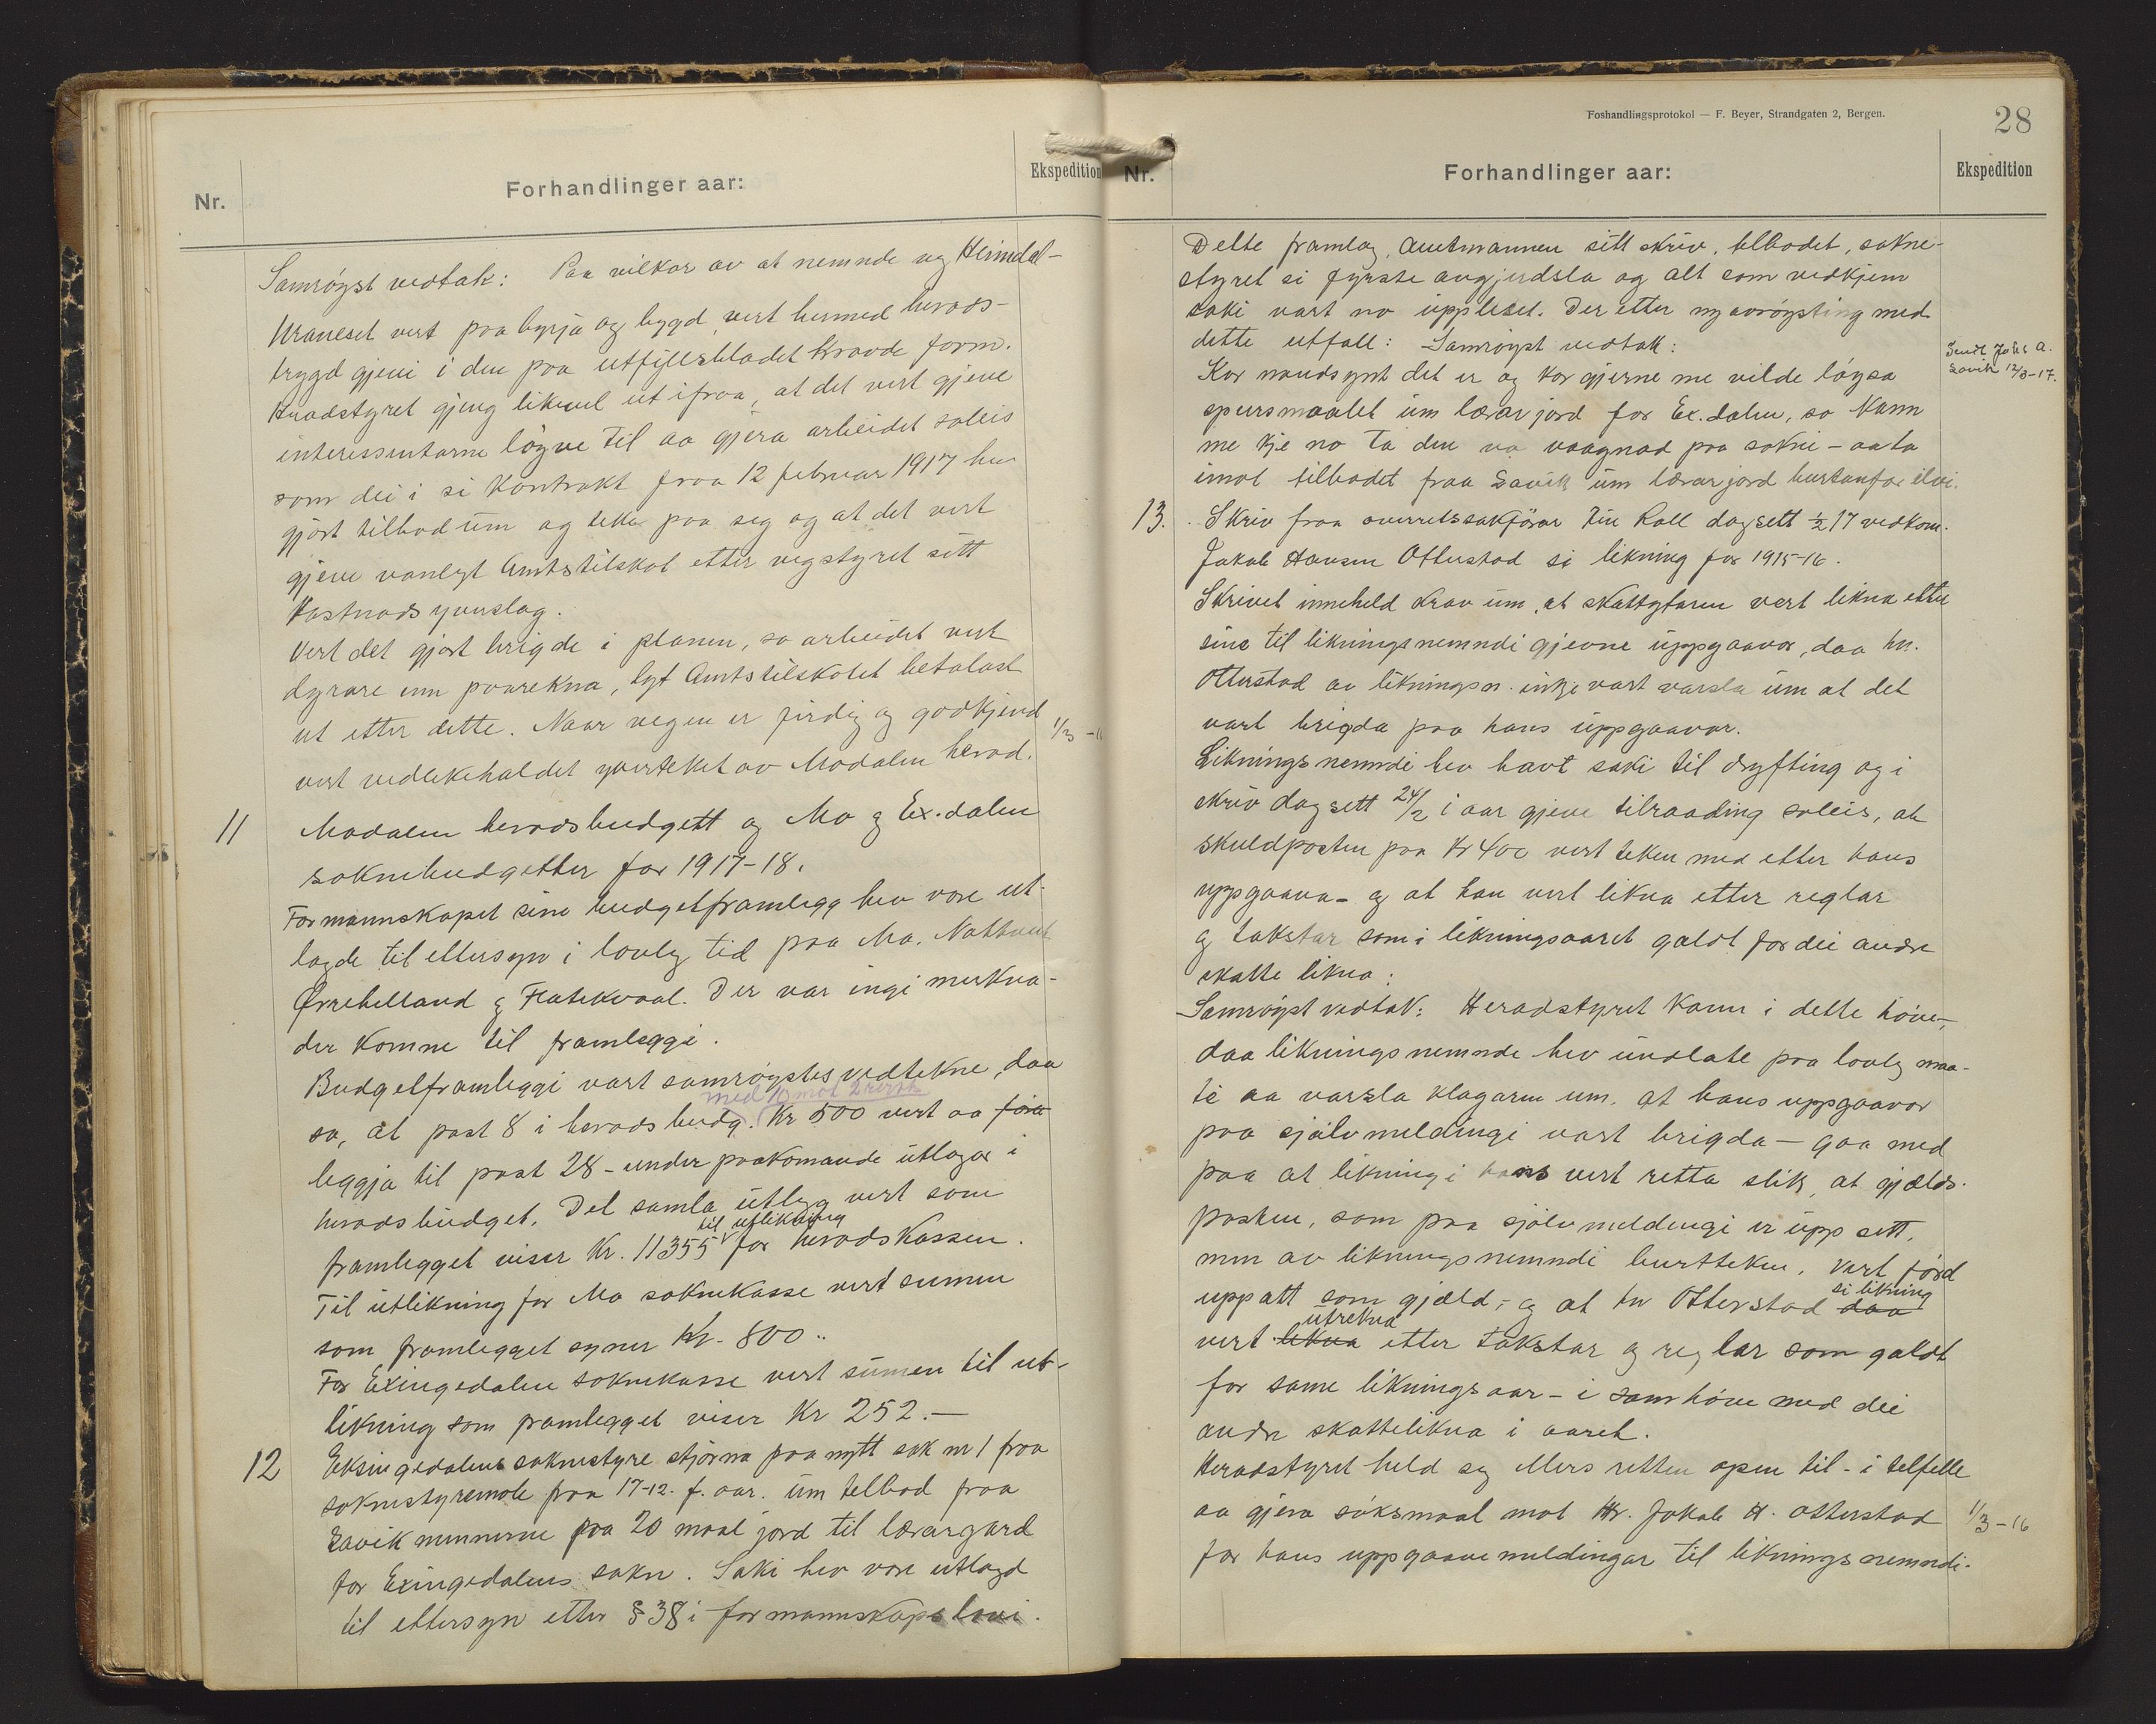 Nr.
Forhandlinger aar:
Ekspedition
Samrøyst vedtak: Paa vilkor av at nemnde veg Heimdal-
Kraneset vert paabyrja og bygd vert hermed herads-
trygd gjevi i den paa utfyllsbladet kravde form.
Heradstyret gjeng likevel ut ifraa, at det vert gjeve
interessentarne løyve til aa gjera arbeidet soleis
som dei i si kontrakt fraa 12 februar 1917 hev
gjort tilbod um og teke paa seg og at det vert
gjeve vanlegt Amtstilskot etter vegstyret sitt
kostnadsyverslag.
Vert det gjort brigde i planen, so arbeidet vert
dyrare enn paarekna, lyt Amtstilskotet betalast
ut etter dette. Naar vegen er ferdig og godkjend
vert vedlikehaldet yverteket av Modalen herad.
1/3 -1
11
Modalen heradsbudgett og Mo og Ex.dalen
soknebudgetter for 1917-18.
Formannskapet sine budgetframlegg hev vore ut-
lagde til ettersyn i lovleg tid paa Mo, Nottveit
Ørrehelland og Flatekvaal. Der var ingi merkna-
der komne til framleggi.
Budgetframleggi vart samrøystes vedtekne, daa
med 10 mot 2 røyster
so, at post 8 i heradsbudg. Kr 500 vert aa føra
leggja til post 28 - under paakomande utlagor i
heradsbudget. Det samla utlegg vert som
til utlikning
framlegget viser Kr. 11355 for heradskassen.
Til utlikning for Mo soknekasse vert summen
som framlegget syner Kr. 800..
For Exingedalen soknekasse vert sumen til ut-
likning som framlegget viser Kr 252.-
12
Eksingedalens soknestyre stjorna paa nytt sak nr 1 fraa
soknestyremøte fraa 17-12. f. aar. um tilbod fraa
Lavik mennerne paa 20 maal jord til lærargard
for Exingedalens sokn. Saki hev vore utlagd
til ettersyn etter § 38 i formannskapslovi.
Foshandlingsprotokol — F. Beyer, Strandgaten 2, Bergen.
28
Nr.
Forhandlinger aar:
Ekspedition
Dette framlag, Amtmannen sitt skriv, tilbodet, sokne-
styret si fyrste avgjerdsla og alt som vedkjem
saki vart no uppleset. Der etter ny avrøysting med
dette utfall: Samrøyst vedtak:
Sendt Johs A.
Lavik 12/3-17.
Kor naudsynt det er og kor gjerne me vilde løysa
spursmaalet um lærarjord for Ex.dalen, so kann
me kje no ta den vaagnad paa sokni - aa ta
imot tilbodet fraa Lavik um lærarjord burtanfor elvi.
13.
Skriv fraa overretssakförar Roll dagsett ½ 17 vedkom.
Jakob Hansen Otterstad si likning for 1915-16.
Skrivet inneheld krav um, at skattytaren vert likna etter
sine til likningsnemndi gjevne uppgaavor, daa hr.
Otterstad av likningsn. inkje vart varsla um at det
vart brigda paa hans uppgaavor.
Likningsnemndi hev havt saki til dryfting og i
skriv dagsett 24/2 i aar gjeve tilraading soleis, at
skuldposten paa Kr 400 vert teken med etter hans
uppgaava - og at han vert likna etter reglar
og takstar som i likningsaaret galdt for dei andre
skatte likna.
Samrøyst vedtak: Heradstyret kann i dette høve -,
daa likningsnemnde hev undlate paa lovleg maa-
te aa varsla klagaren um, at hans uppgaavor
paa sjølvmeldingi vart brigda - gaa med
paa at likningi hans vert retta slik, at gjælds-
posten, som paa sjølvmeldingi er upp sett,
men av likningsnemndi burtteken, vert förd
si likning
uppatt som gjæld, - og at hr Otterstad daa
utrekna
vert likna etter takstar og reglar som galdt
for same likningsaar - i samhøve med dei
andre skattelikna i aaret.
Heradstyret held seg elles retten open til - i telfelle
aa gjera söksmaal mot Hr. Jakob H. Otterstad
1/3-16
for hans uppgaavemeldingar til likningsnemndi.